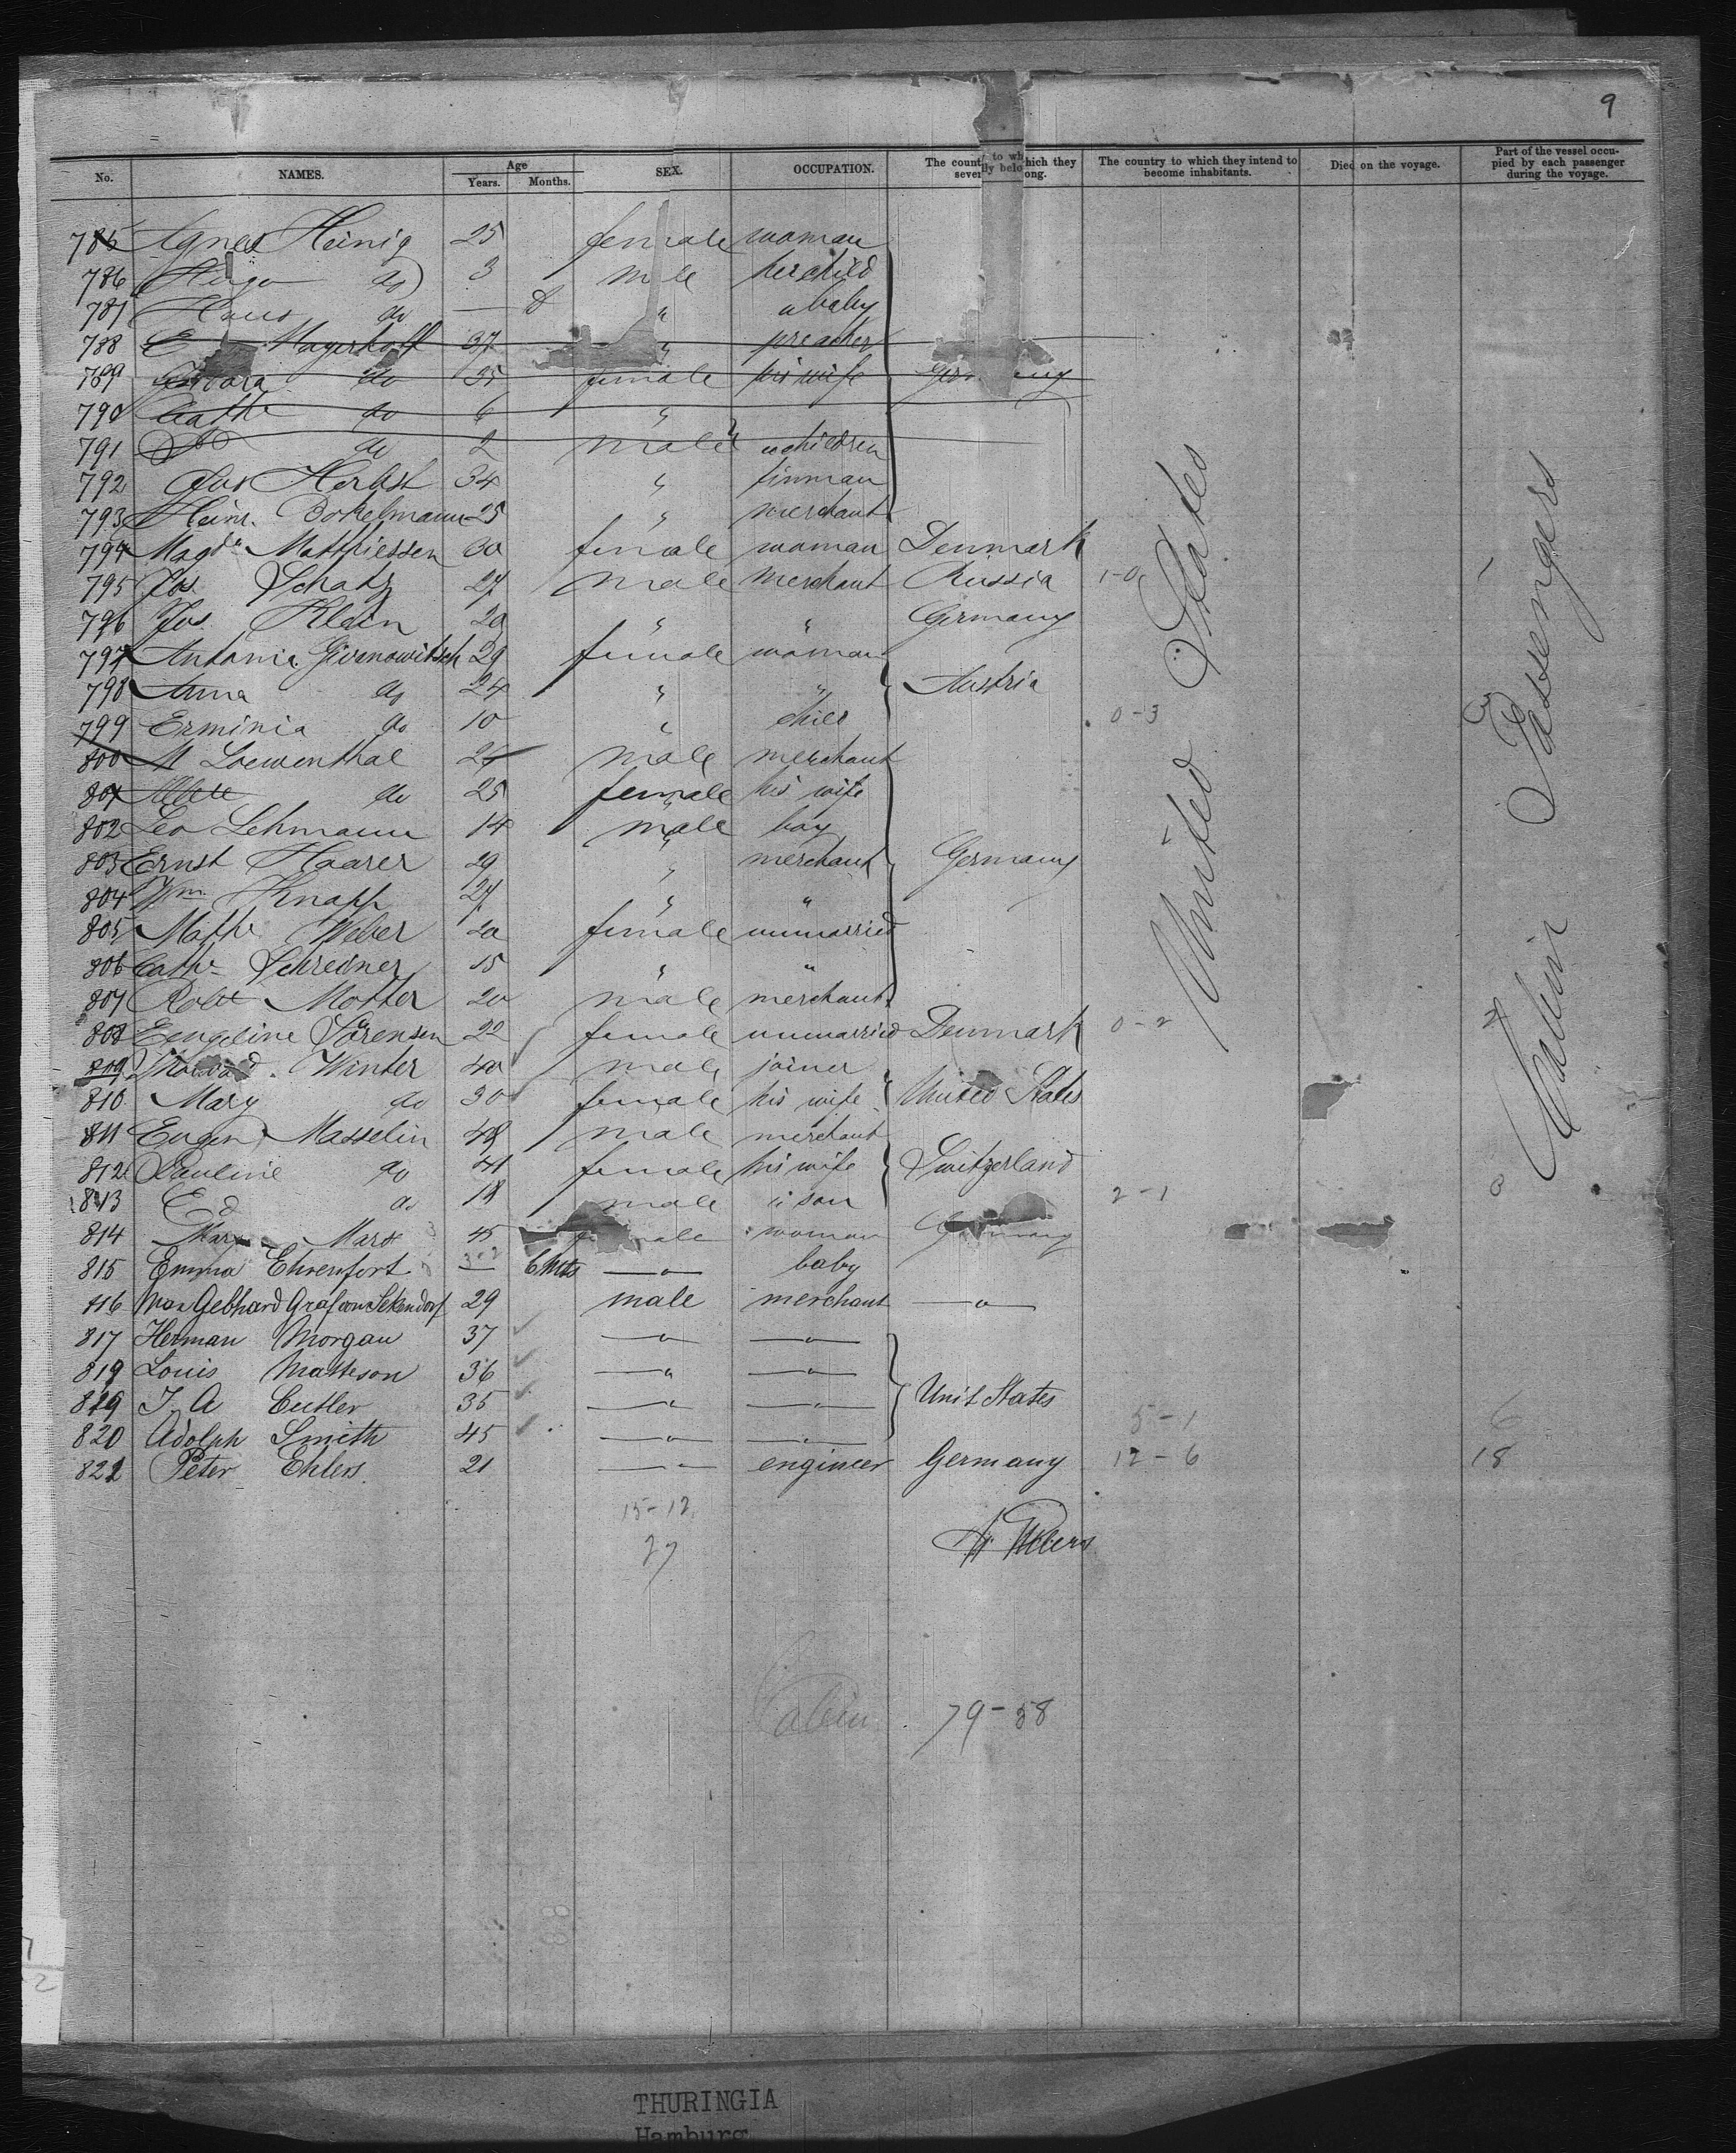 9
No. NAMES. Age Years. Months. SEX. OCCUPATION. The country to which they severally belong. The country to which they intend to become inhabitants. Died on the voyage. Part of the vessel occupied by each passenger during the voyage.
785 Agnes Heinig 25 female woman
786 Hugo do 3 male her child
787 Hans do — 8 " " baby
788 E Mayerhoff 37 " preacher
789 do 35 female his wife Germany
790 Cathe do 6 "
791 do 2 male " children
792 Herbst 34 " tinman
793 Heinr. Bokelmann 25 " merchant
794 Magda Matthiessen 30 female woman Denmark
795 Jos. Schatz 27 male merchant Russia 1-0
796 Jos. Klein 20 " " Germany
797 Antonia Givanowitsch 29 female woman
798 Anna do 24 " " Austria
799 Erminia do 10 " child 0-3 3
800 M Loewenthal 24 male merchant
801 do 25 female his wife
802 Leo Lehmann 14 male boy
803 Ernst Haarer 29 " merchant Germany
804 Wm. Knapp 27 " "
805 Mathe Weber 20 female unmarried
806 Cathe Schreiner 15 " "
807 Robt Motter 20 male merchant
808 Engeline Sörensen 22 female unmarried Denmark 0-2
809 Winter 40 male joiner
810 Mary do 30 female his wife United States
811 Eugen Masselin 48 male merchant
812 Pauline do 41 female his wife Switzerland
813 Ed do 18 male " son 2-1 3
814 Mary Marx 45 female woman Germany
815 Emma Ehrenfort — 6 Mts —"— baby
816 Max Gebhard Graf von Sekendorf 29 male merchant —"—
817 Herman Morgan 37 —"— —"—
819 Louis Matteson 36 —"— —"—
819 J. A Cutler 35 —"— —"— Unit States
820 Adolph Smith 45 —"— —"— 5-1 6
821 Peter Ehlers 21 —"— engineer Germany 12-6 18
United States
Cabin Passengers
15-12
27
Cabin 79-58
THURINGIA
Hamburg